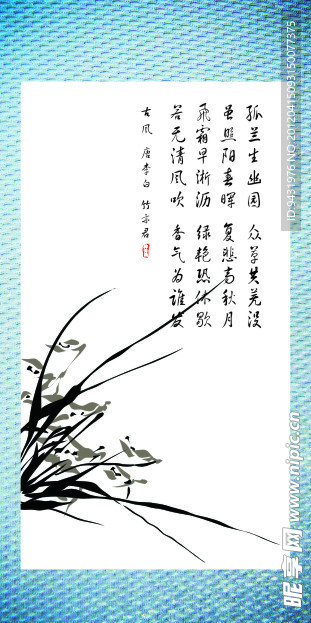 孤兰生幽园 众草共芜没
虽照阳春晖 复悲高秋月
飞霜早淅沥 绿艳恐休歇
若无清风吹 香气为谁发
古风 唐李白 竹亦君
ID:9431976 NO:20120415093150077375
昵享网 www.nipic.cn